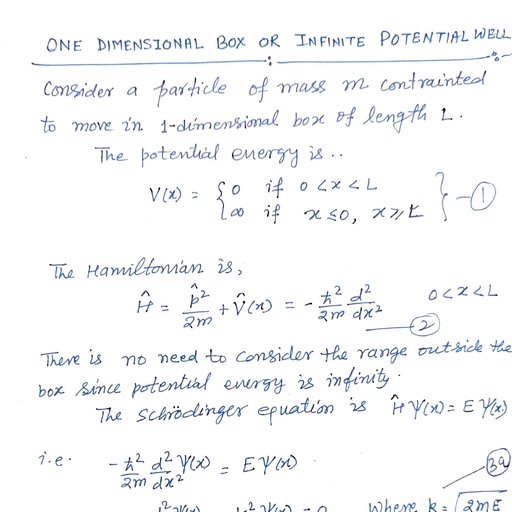 ONE DIMENSIONAL BOX OR INFINITE POTENTIAL WELL
Consider a particle of mass m contrainted
to move in 1-dimensional box of length L.
The potential energy is..
V(x) = { 0 if 0 < x < L
∞ if x ≤ 0, x ≥ L } - ①
The Hamiltonian is,
Ĥ = p̂²/2m + V̂(x) = - ħ²/2m d²/dx² 0 < x < L
②
There is no need to consider the range outside the
box since potential energy is infinity.
The Schrödinger equation is Ĥ Ψ(x) = E Ψ(x)
i.e. - ħ²/2m d²/dx² Ψ(x) = E Ψ(x)
3a
where k = √2mE